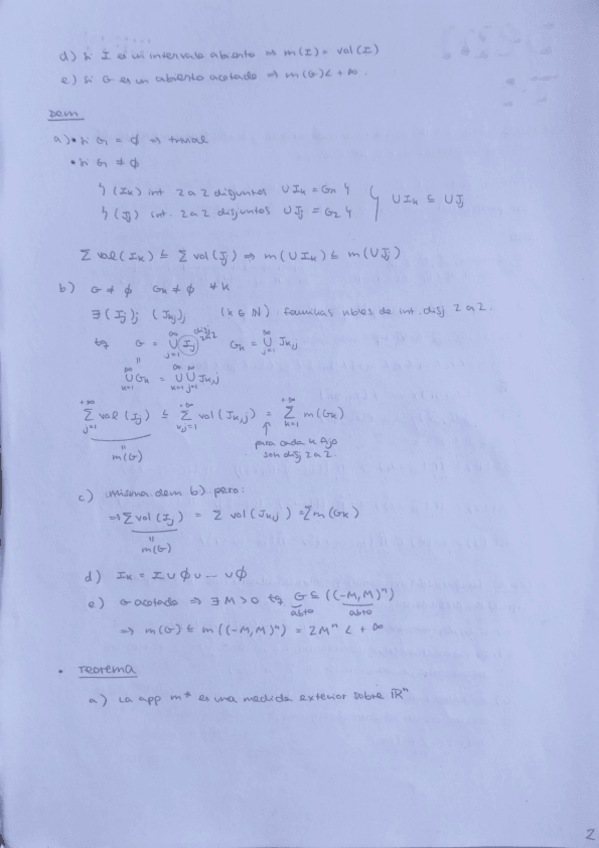 d) Si I es un intervalo abierto ⇒ m(I) = vol(I)
e) Si G es un abierto acotado ⇒ m(G) < +∞.
Dem
a) • Si G₁ = ∅ ⇒ trivial
• Si G₁ ≠ ∅
∃ (Iₖ) int 2 a 2 disjuntos ∪Iₖ = G₁ ∪Iₖ ⊆ ∪Jⱼ
∃ (Jⱼ) int. 2 a 2 disjuntos ∪Jⱼ = G₂
∑ vol(Iₖ) ≤ ∑ vol(Jⱼ) ⇒ m(∪Iₖ) ≤ m(∪Jⱼ)
b) G ≠ ∅ Gₖ ≠ ∅ ∀k
∃(Iⱼ)ⱼ (Jₖ,ⱼ)ⱼ (k ∈ ℕ) familias nbles de int. disj 2 a 2.
tq G = ∪_{j=1}^{∞} Iⱼ disj 2a2 Gₖ = ∪_{j=1}^{∞} Jₖ,ⱼ
=
∪_{k=1}^{∞} Gₖ = ∪_{k=1}^{∞} ∪_{j=1}^{∞} Jₖ,ⱼ
∑_{j=1}^{+∞} vol(Iⱼ) ≤ ∑_{k,j=1}^{+∞} vol(Jₖ,ⱼ) = ∑_{k=1}^{+∞} m(Gₖ)
=
m(G)
↑
para cada k fijo
son disj 2 a 2.
c) misma dem b) pero:
⇒ ∑ vol(Iⱼ) = ∑ vol(Jₖ,ⱼ) = ∑ m(Gₖ)
=
m(G)
d) Iₖ = I ∪ ∅ ∪ ... ∪ ∅
e) G acotado ⇒ ∃ M > 0 tq G ⊆ ((-M, M)ⁿ)
abto abto
⇒ m(G) ≤ m((-M, M)ⁿ) = 2Mⁿ < +∞
• Teorema
a) La app m* es una medida exterior sobre ℝⁿ
2